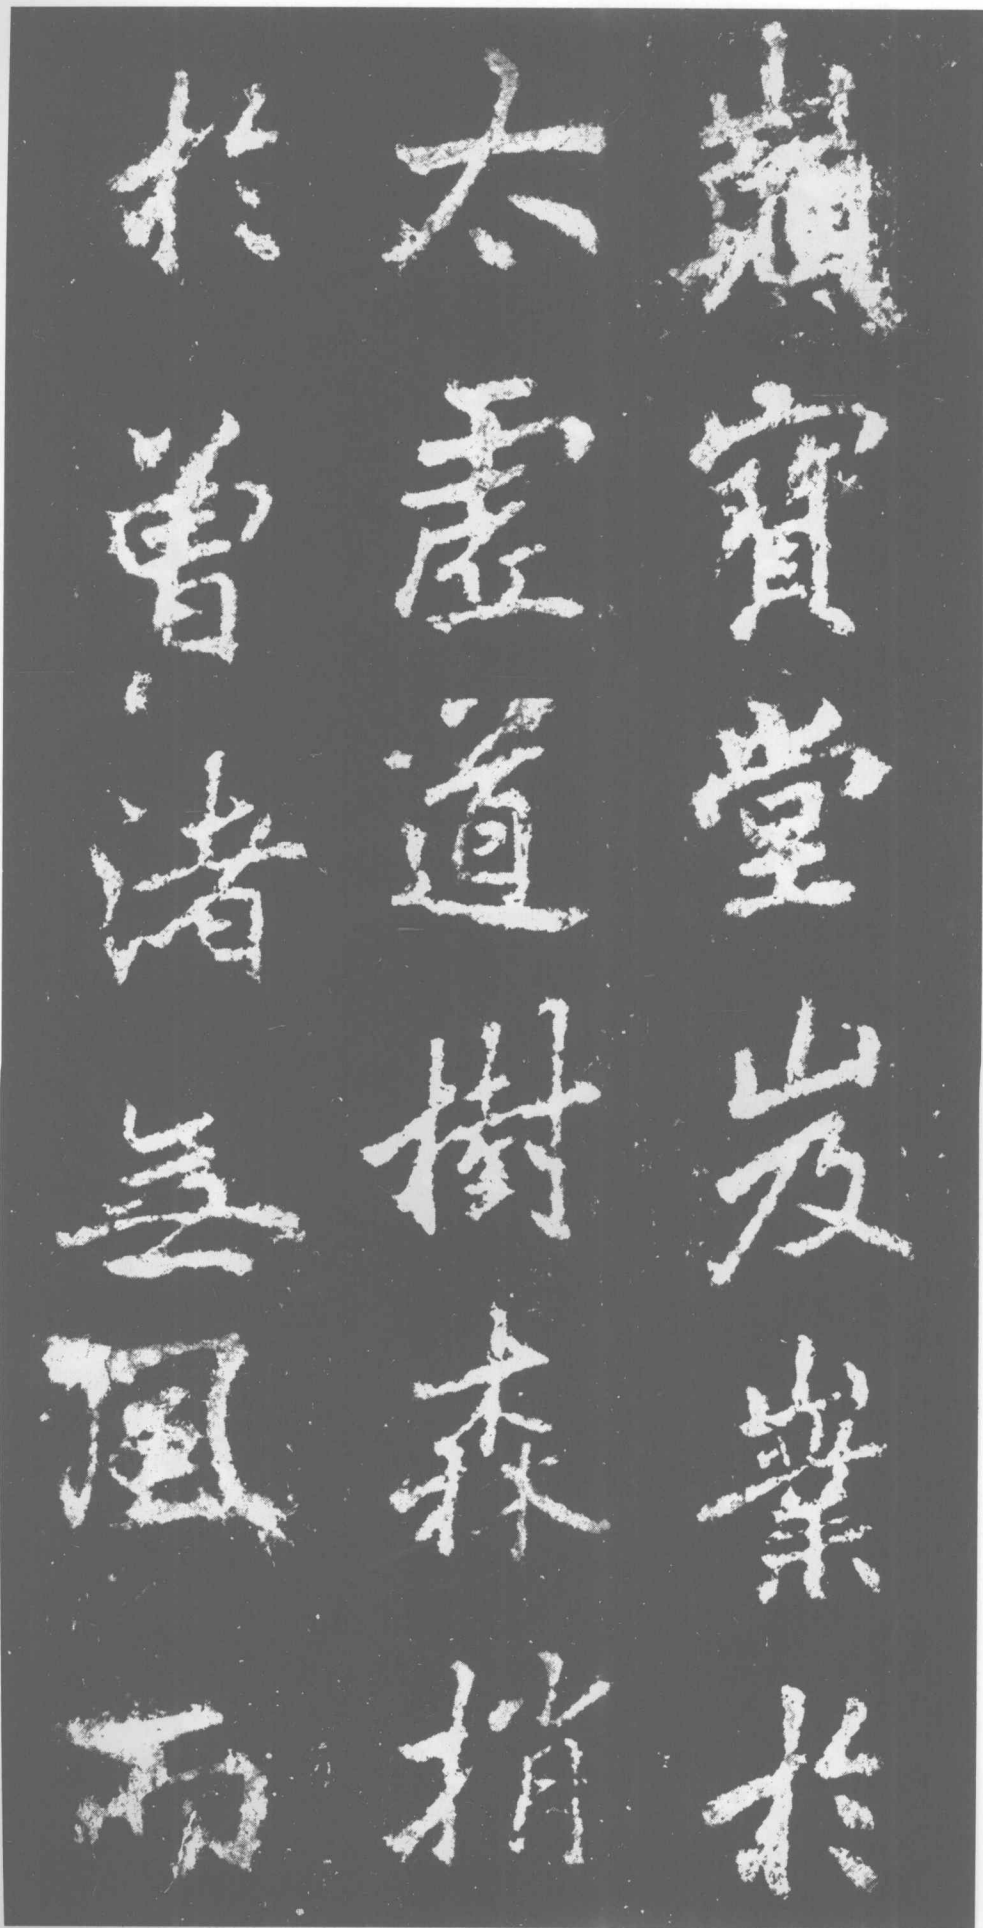 巔寶堂岌嶪於
太虛道樹森捎
於曾渚無風而